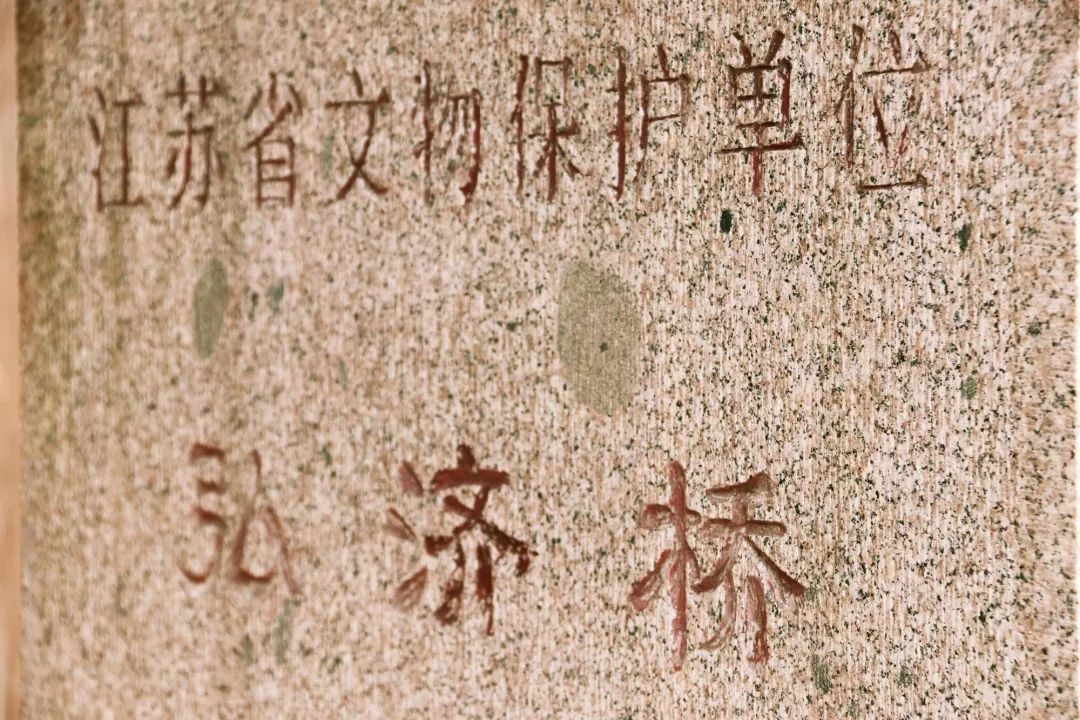 江苏省文物保护单位
弘济桥